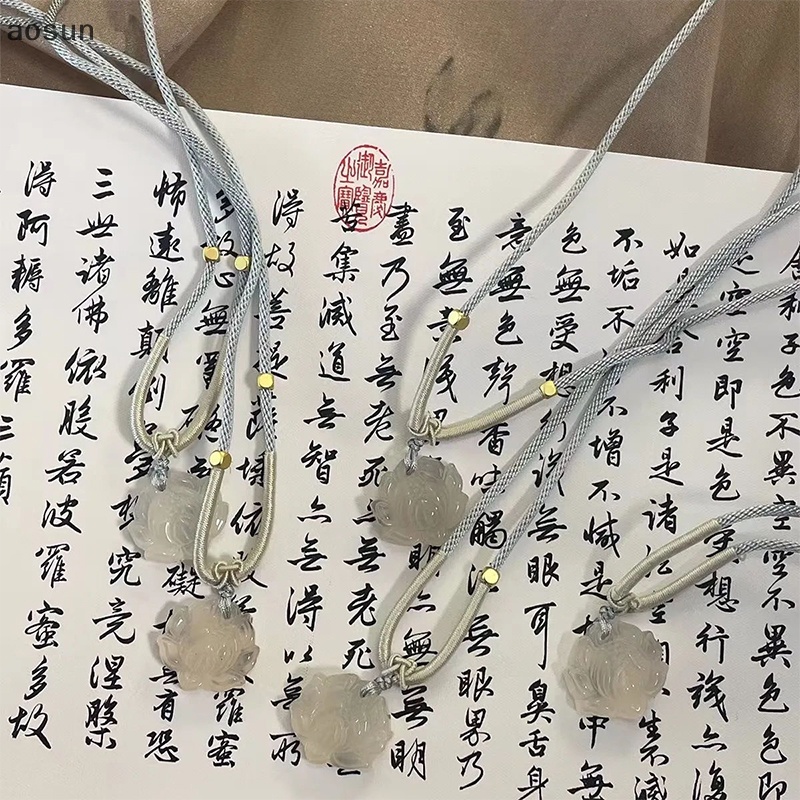 aosun
嘉慶御覽之寶
舍利子色不異空空不異色色即
空空即是色想行識亦復
如是舍利子是諸生不滅
不垢不不增不減是中無
色無受想行識無眼耳鼻舌身
意無色聲香味觸法無眼界乃
至無意識明亦無無明
盡乃至無老死亦無老死
苦集滅道無智亦無得以無所
得故菩提薩埵依羅蜜
多故心無罣礙無有恐
怖遠離顛倒想究竟涅槃
三世諸佛依般若波羅蜜多故
得阿耨多羅三藐